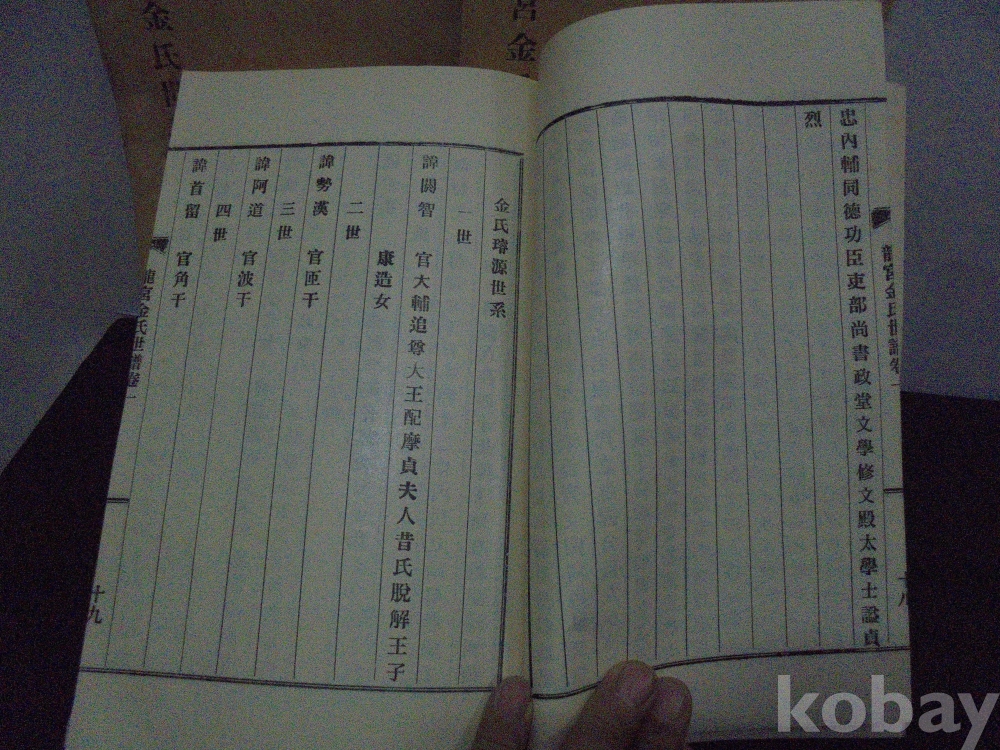 金氏
宮金
龍宮金氏世譜卷一
十八
忠內輔同德功臣吏部尚書政堂文學修文殿太學士諡貞
烈
金氏璿源世系
一世
諱閼智 官大輔追尊大王配摩貞夫人昔氏脫解王子
康造女
二世
諱勢漢 官匝干
三世
諱阿道 官波干
四世
諱首留 官角干
龍宮金氏世譜卷一
十九
kobay